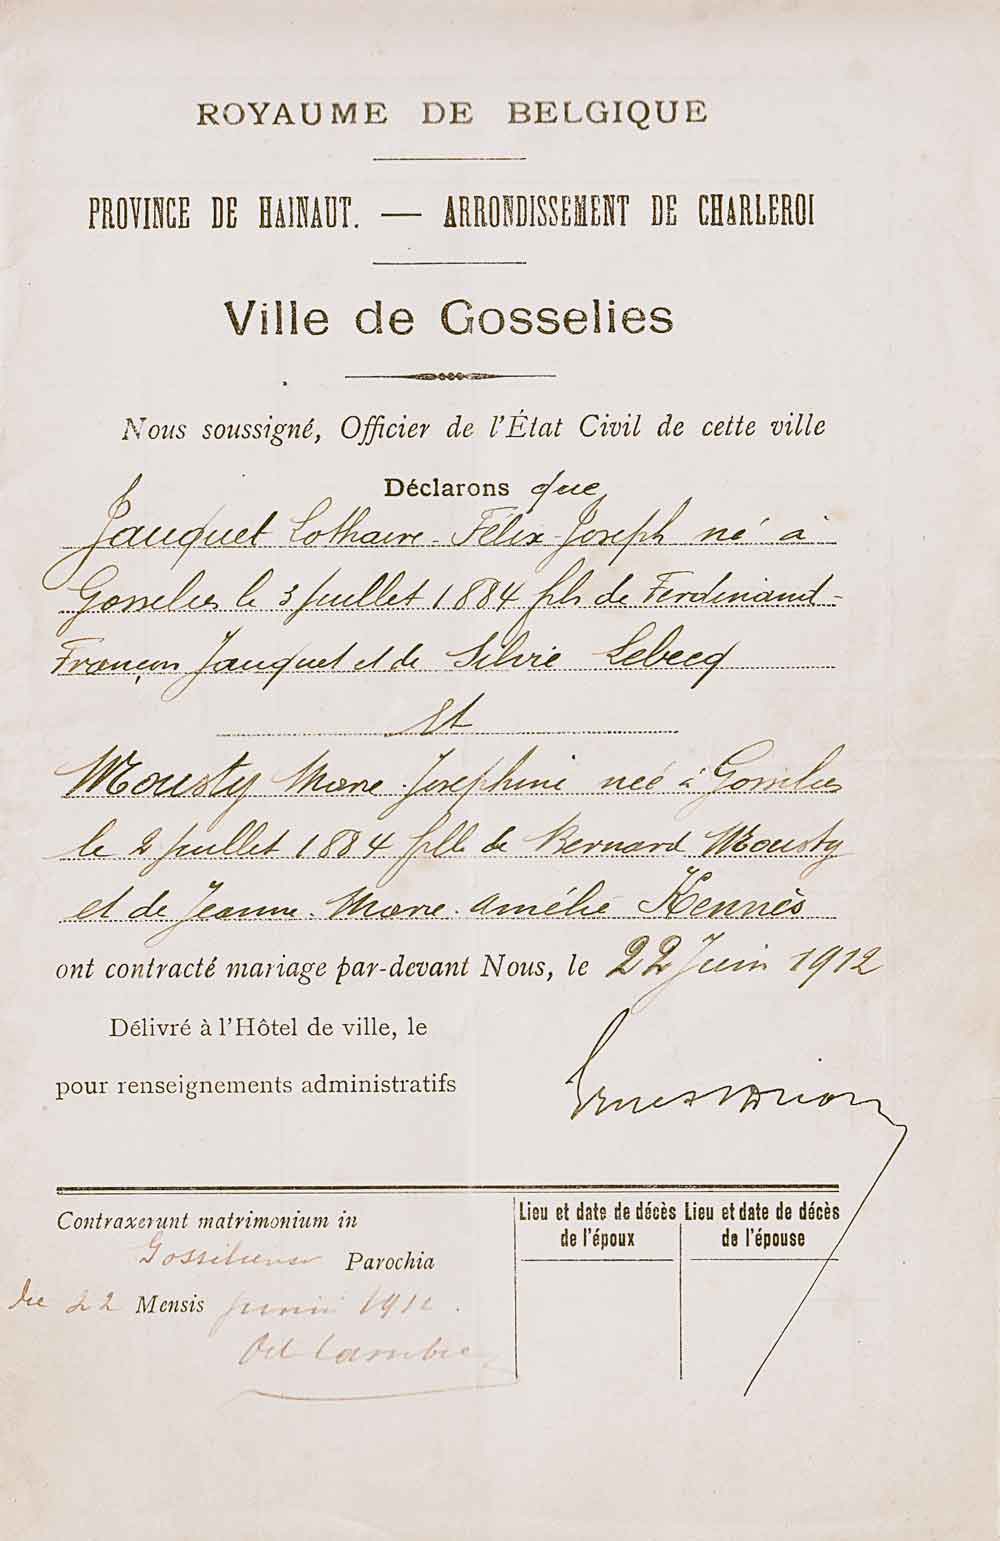 ROYAUME DE BELGIQUE
PROVINCE DE HAINAUT. — ARRONDISSEMENT DE CHARLEROI
Ville de Gosselies
Nous soussigné, Officier de l'État Civil de cette ville
Déclarons que
Jauquet Lothaire-Félix-Joseph né à
Gosselies le 3 juillet 1884 fils de Ferdinand-
François Jauquet et de Silvie Lebecq
Et
Mousty Marie-Joséphine née à Gosselies
le 2 juillet 1884 fille de Bernard Mousty
et de Jeanne-Marie-Amélie Kennès
ont contracté mariage par-devant Nous, le 22 Juin 1912
Délivré à l'Hôtel de ville, le
pour renseignements administratifs
Contraxerunt matrimonium in
Parochia
die 22 Mensis junii 1912.
Lieu et date de décès de l'époux
Lieu et date de décès de l'épouse